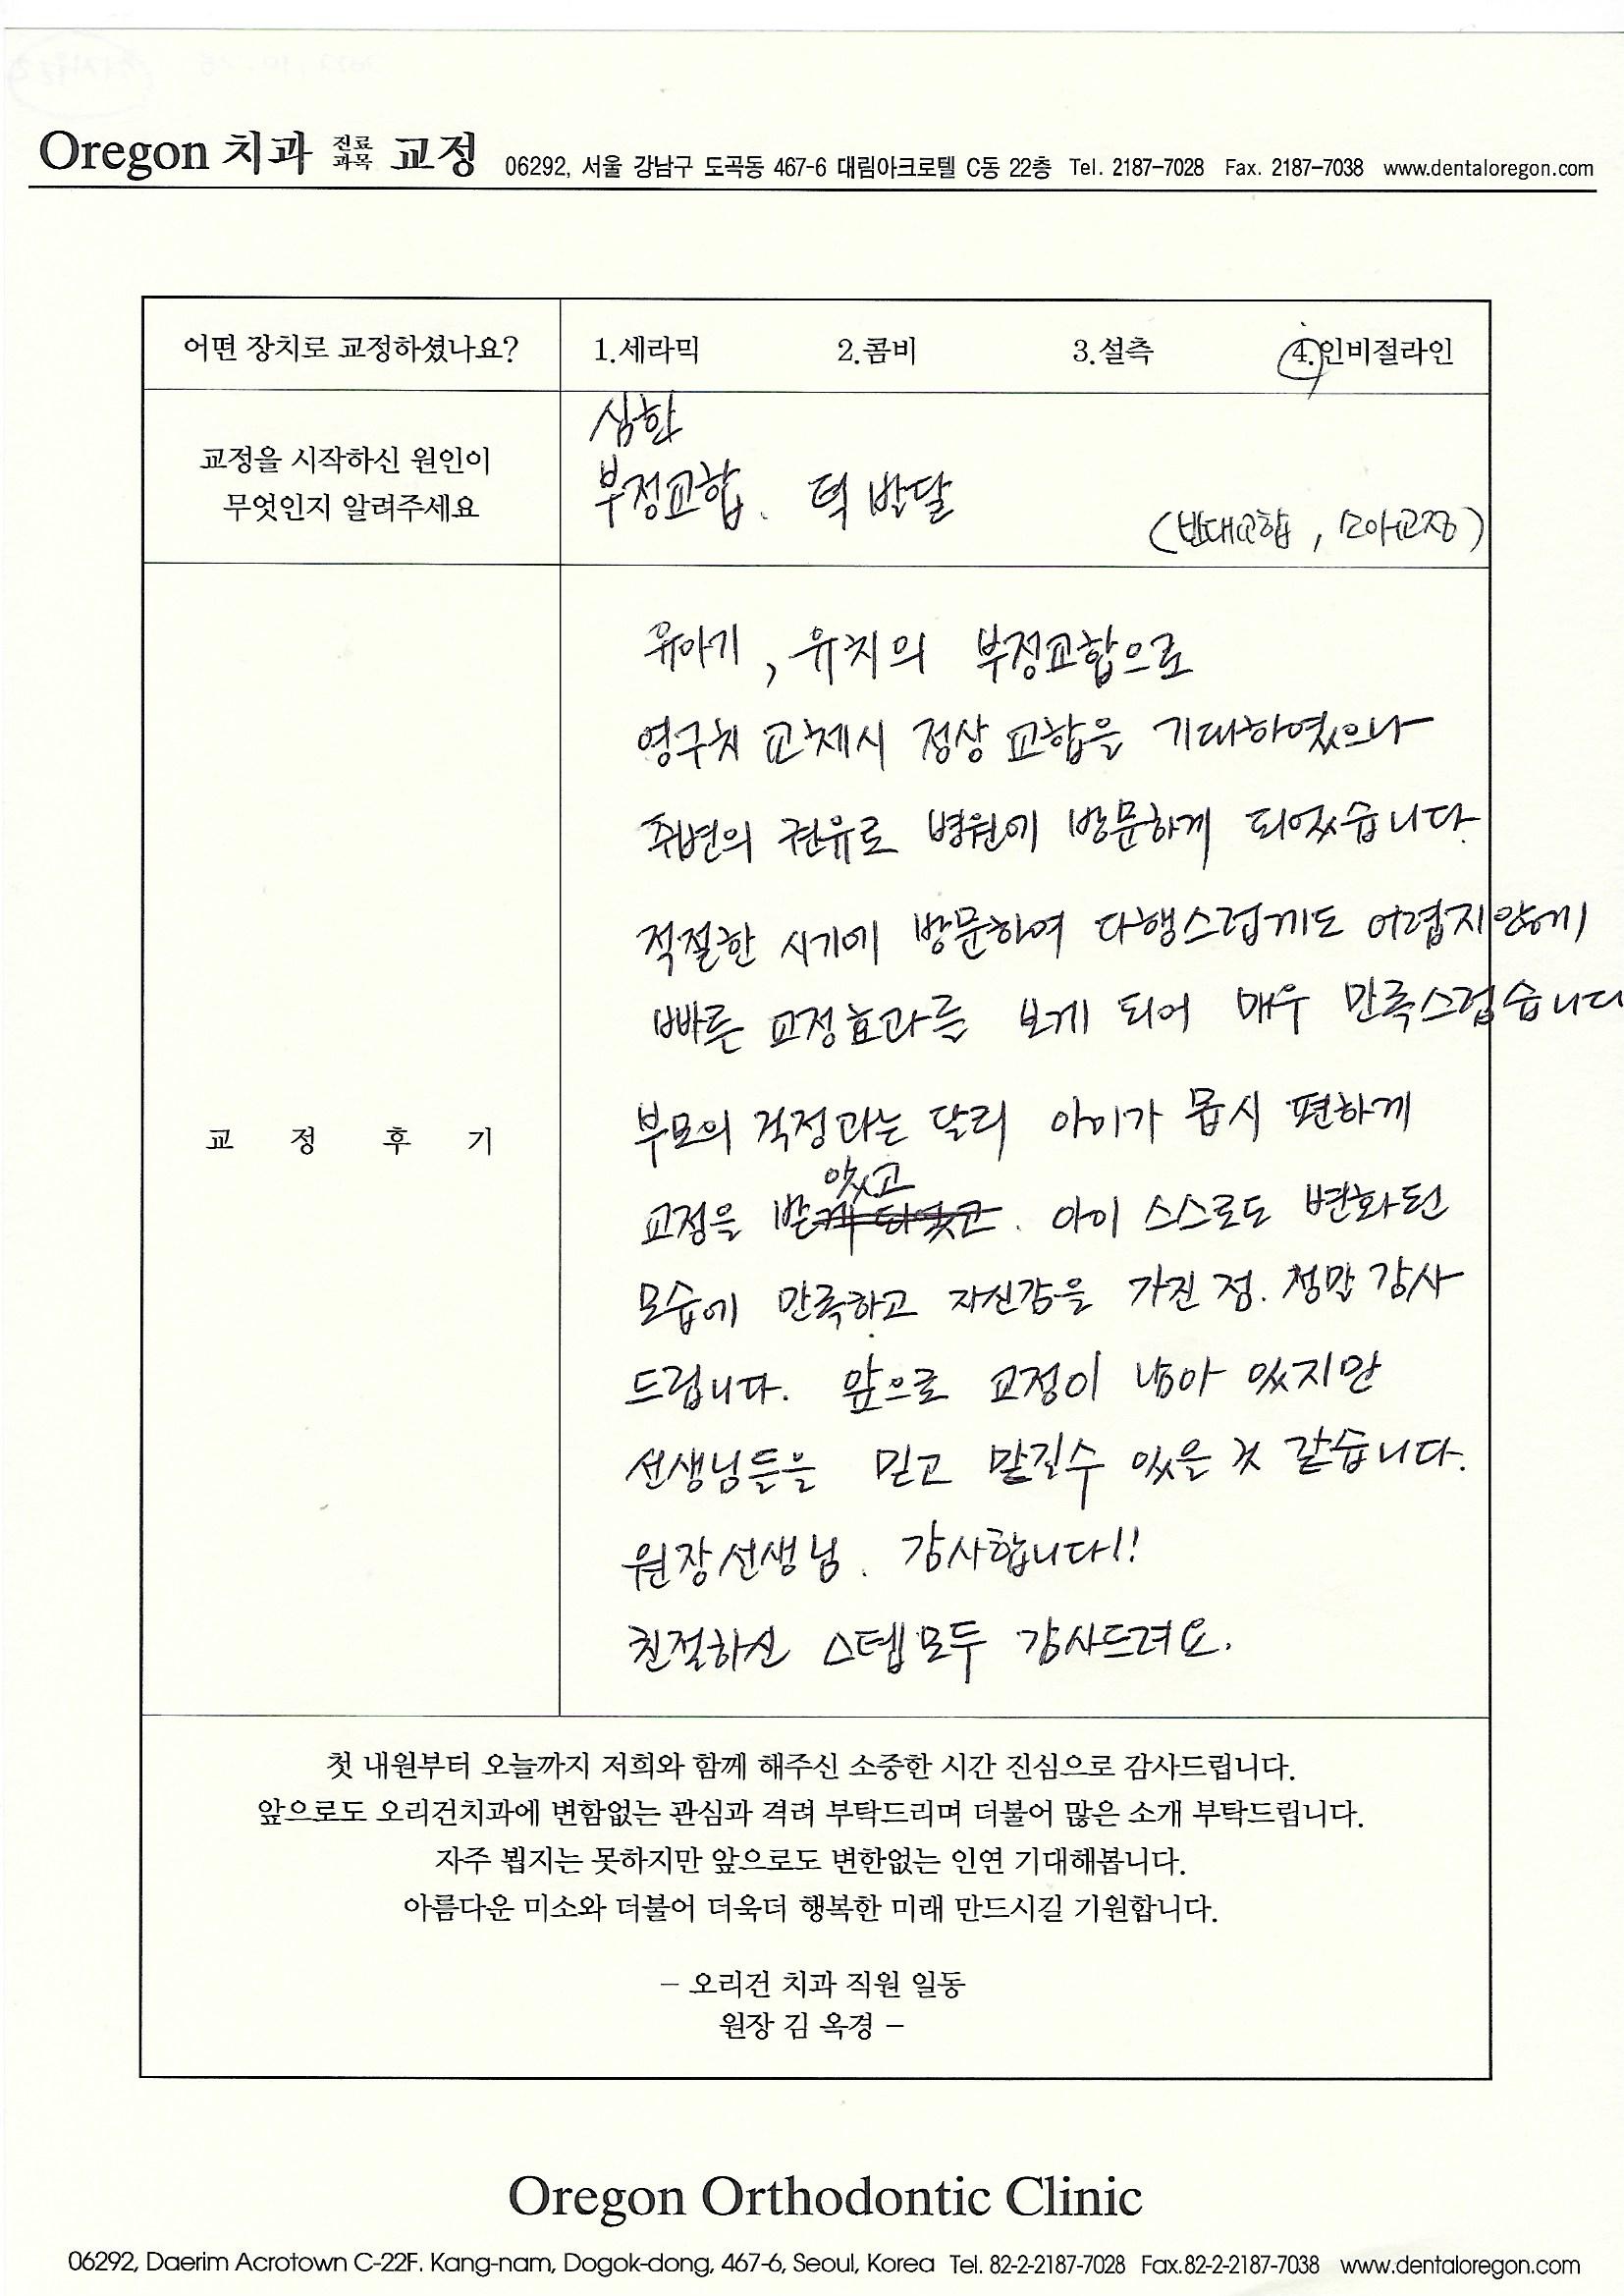 Oregon 치과 진료과목 교정 06292, 서울 강남구 도곡동 467-6 대림아크로텔 C동 22층 Tel. 2187-7028 Fax. 2187-7038 www.dentaloregon.com
어떤 장치로 교정하셨나요? 1.세라믹 2.콤비 3.설측 4.인비절라인
교정을 시작하신 원인이
무엇인지 알려주세요
심한
부정교합. 턱 발달
(반대교합, 소아교정)
교 정 후 기
유아기, 유치의 부정교합으로
영구치 교체시 정상 교합을 기대하였으나
주변의 권유로 병원에 방문하게 되었습니다.
적절한 시기에 방문하여 다행스럽게도 어렵지않게
빠른 교정효과를 보게 되어 매우 만족스럽습니다
부모의 걱정과는 달리 아이가 몹시 편하게
았고
교정을 받게 되었고. 아이 스스로도 변화된
모습에 만족하고 자신감을 가진 점. 정말 감사
드립니다. 앞으로 교정이 남아 있지만
선생님들을 믿고 맡길수 있을 것 같습니다.
원장선생님. 감사합니다!!
친절하신 스텝모두 감사드려요.
첫 내원부터 오늘까지 저희와 함께 해주신 소중한 시간 진심으로 감사드립니다.
앞으로도 오리건치과에 변함없는 관심과 격려 부탁드리며 더불어 많은 소개 부탁드립니다.
자주 뵙지는 못하지만 앞으로도 변한없는 인연 기대해봅니다.
아름다운 미소와 더불어 더욱더 행복한 미래 만드시길 기원합니다.
- 오리건 치과 직원 일동
원장 김 옥경 -
Oregon Orthodontic Clinic
06292, Daerim Acrotown C-22F. Kang-nam, Dogok-dong, 467-6, Seoul, Korea Tel. 82-2-2187-7028 Fax.82-2-2187-7038 www.dentaloregon.com